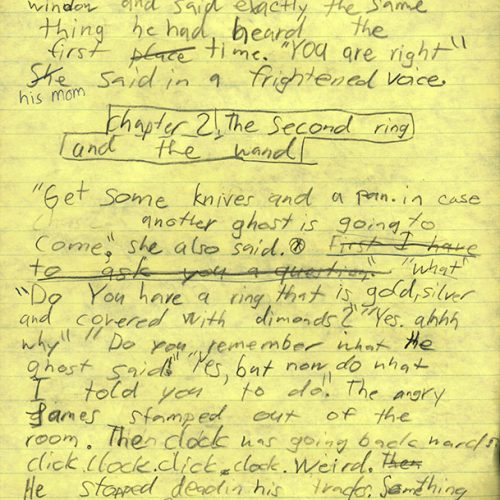 window and said exactly the same
thing he had heard the
first place time. "You are right"
She said in a frightened voice
his mom
Chapter 2, The Second ring
and the wand
"Get some knives and a pan. in case
another ghost is going to
come," she also said. First I have
to ask you a question." "What"
"Do You have a ring that is gold, silver
and covered with dimonds?" "Yes. ahhh
why" "Do you remember what He
ghost said" "Yes, but now do what
I told you to do." The angry
James stamped out of the
room. Then clock was going back wards
click.clock.click.clock. Weird. Then
He stopped dead in his tracks Something